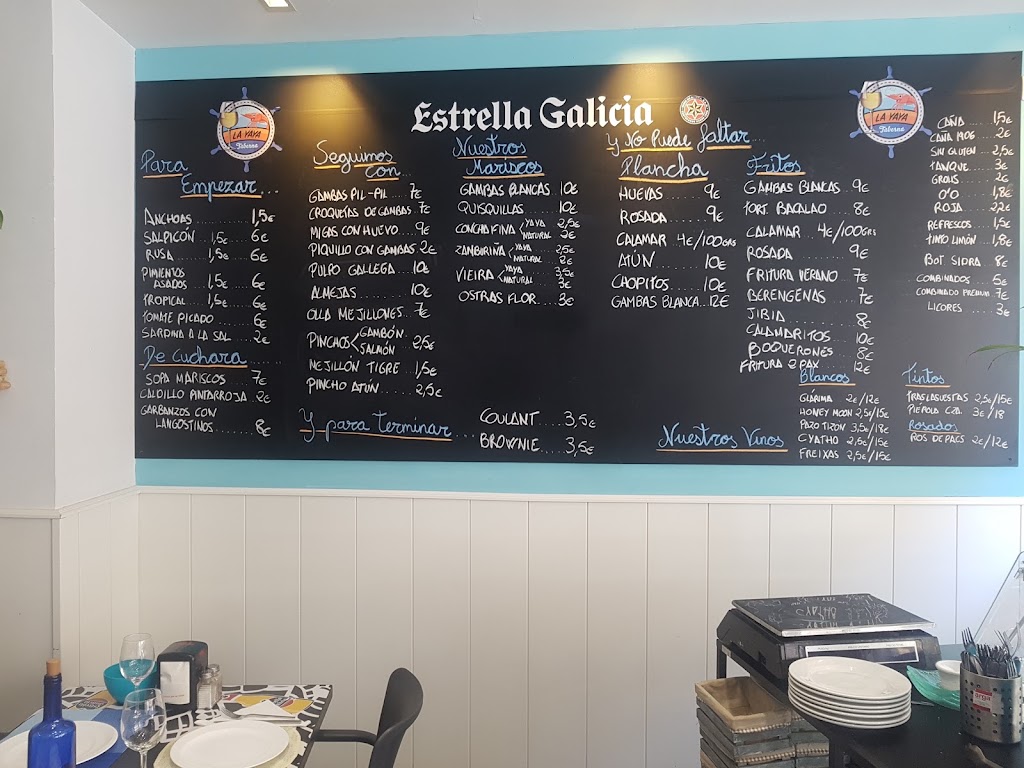 Estrella Galicia
LA YAYA
Taberna
LA YAYA
Taberna
Para
Empezar...
ANCHOAS ...... 1,5€
SALPICÓN ... 1,5€ ... 6€
RUSA ...... 1,5€ ... 6€
PIMIENTOS
ASADOS ... 1,5€ ... 6€
TROPICAL ... 1,5€ ... 6€
TOMATE PICADO ...... 6€
SARDINA A LA SAL ... 2€
De Cuchara ...
SOPA MARISCOS ... 7€
CALDILLO PINTARROJA .. 2€
GARBANZOS CON
LANGOSTINOS ....... 8€
Seguimos
con...
GAMBAS PIL-PIL ... 7€
CROQUETAS DE GAMBAS 7€
MIGAS CON HUEVO ... 9€
PIQUILLO CON GAMBAS 2€
PULPO GALLEGA .. 10€
ALMEJAS ....... 10€
OLLA MEJILLONES . 7€
PINCHOS < GAMBÓN
SALMÓN 2,5€
MEJILLÓN TIGRE .. 1,5€
PINCHO ATÚN ..... 2,5€
Nuestros
Mariscos
GAMBAS BLANCAS 10€
QUISQUILLAS ... 10€
CONCHA FINA < YAYA 2,5€
NATURAL 2€
ZAMBURIÑA < YAYA 2,5€
NATURAL 2€
VIEIRA < YAYA 3,5€
NATURAL 3€
OSTRAS FLOR ... 3€
Y No Puede faltar ...
Plancha
HUEVAS ... 9€
ROSADA ... 9€
CALAMAR 4€/100GRS
ATÚN ... 10€
CHOPITOS ... 10€
GAMBAS BLANCA .. 12€
Fritos
GAMBAS BLANCAS .. 9€
TORT. BACALAO .. 8€
CALAMAR 4€/100GRS
ROSADA ..... 9€
FRITURA VERANO .. 7€
BERENGENAS ... 7€
JIBIA ....... 8€
CALAMARITOS ... 10€
BOQUERONES ... 8€
FRITURA 2 PAX ... 12€
CAÑA ..... 1,5€
CAÑA 1906 .. 2€
SIN GLUTEN .. 2,5€
TANQUE .... 3€
GROLS .... 2€
0'0 ..... 1,8€
ROJA .... 2,2€
REFRESCOS .. 1,5€
TINTO LIMÓN .. 1,8€
BOT SIDRA .. 8€
COMBINADOS .. 5€
COMBINADO PREMIUM 7€
LICORES .... 3€
Y para Terminar ...
COULANT .... 3,5€
BROWNIE .... 3,5€
Nuestros Vinos
Blancos
GLARIMA 2€/12€
HONEY MOON 2,5€/15€
PAZO TIZON 3,5€/18€
CYATHO 2,5€/15€
FREIXAS 2,5€/15€
Tintos
TRASLASCUESTAS 2,5€/15€
PIÉROLA CZA. 3€/18
Rosados
ROS DE PACS 2€/12€